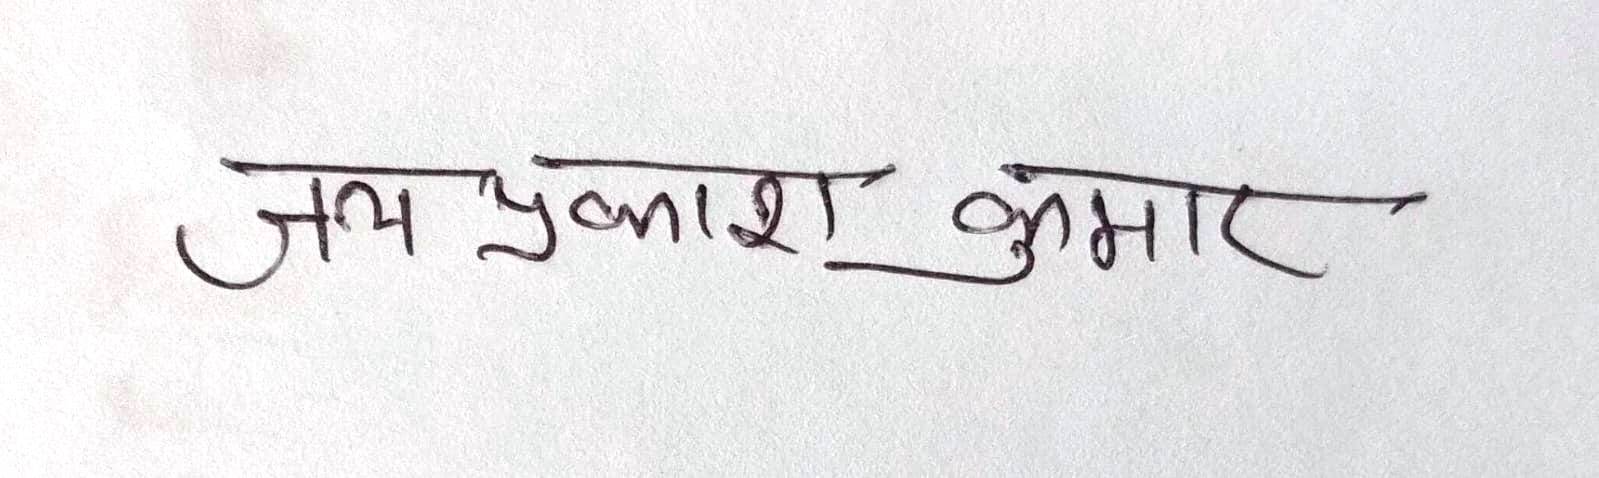 जय प्रकाश कुमार